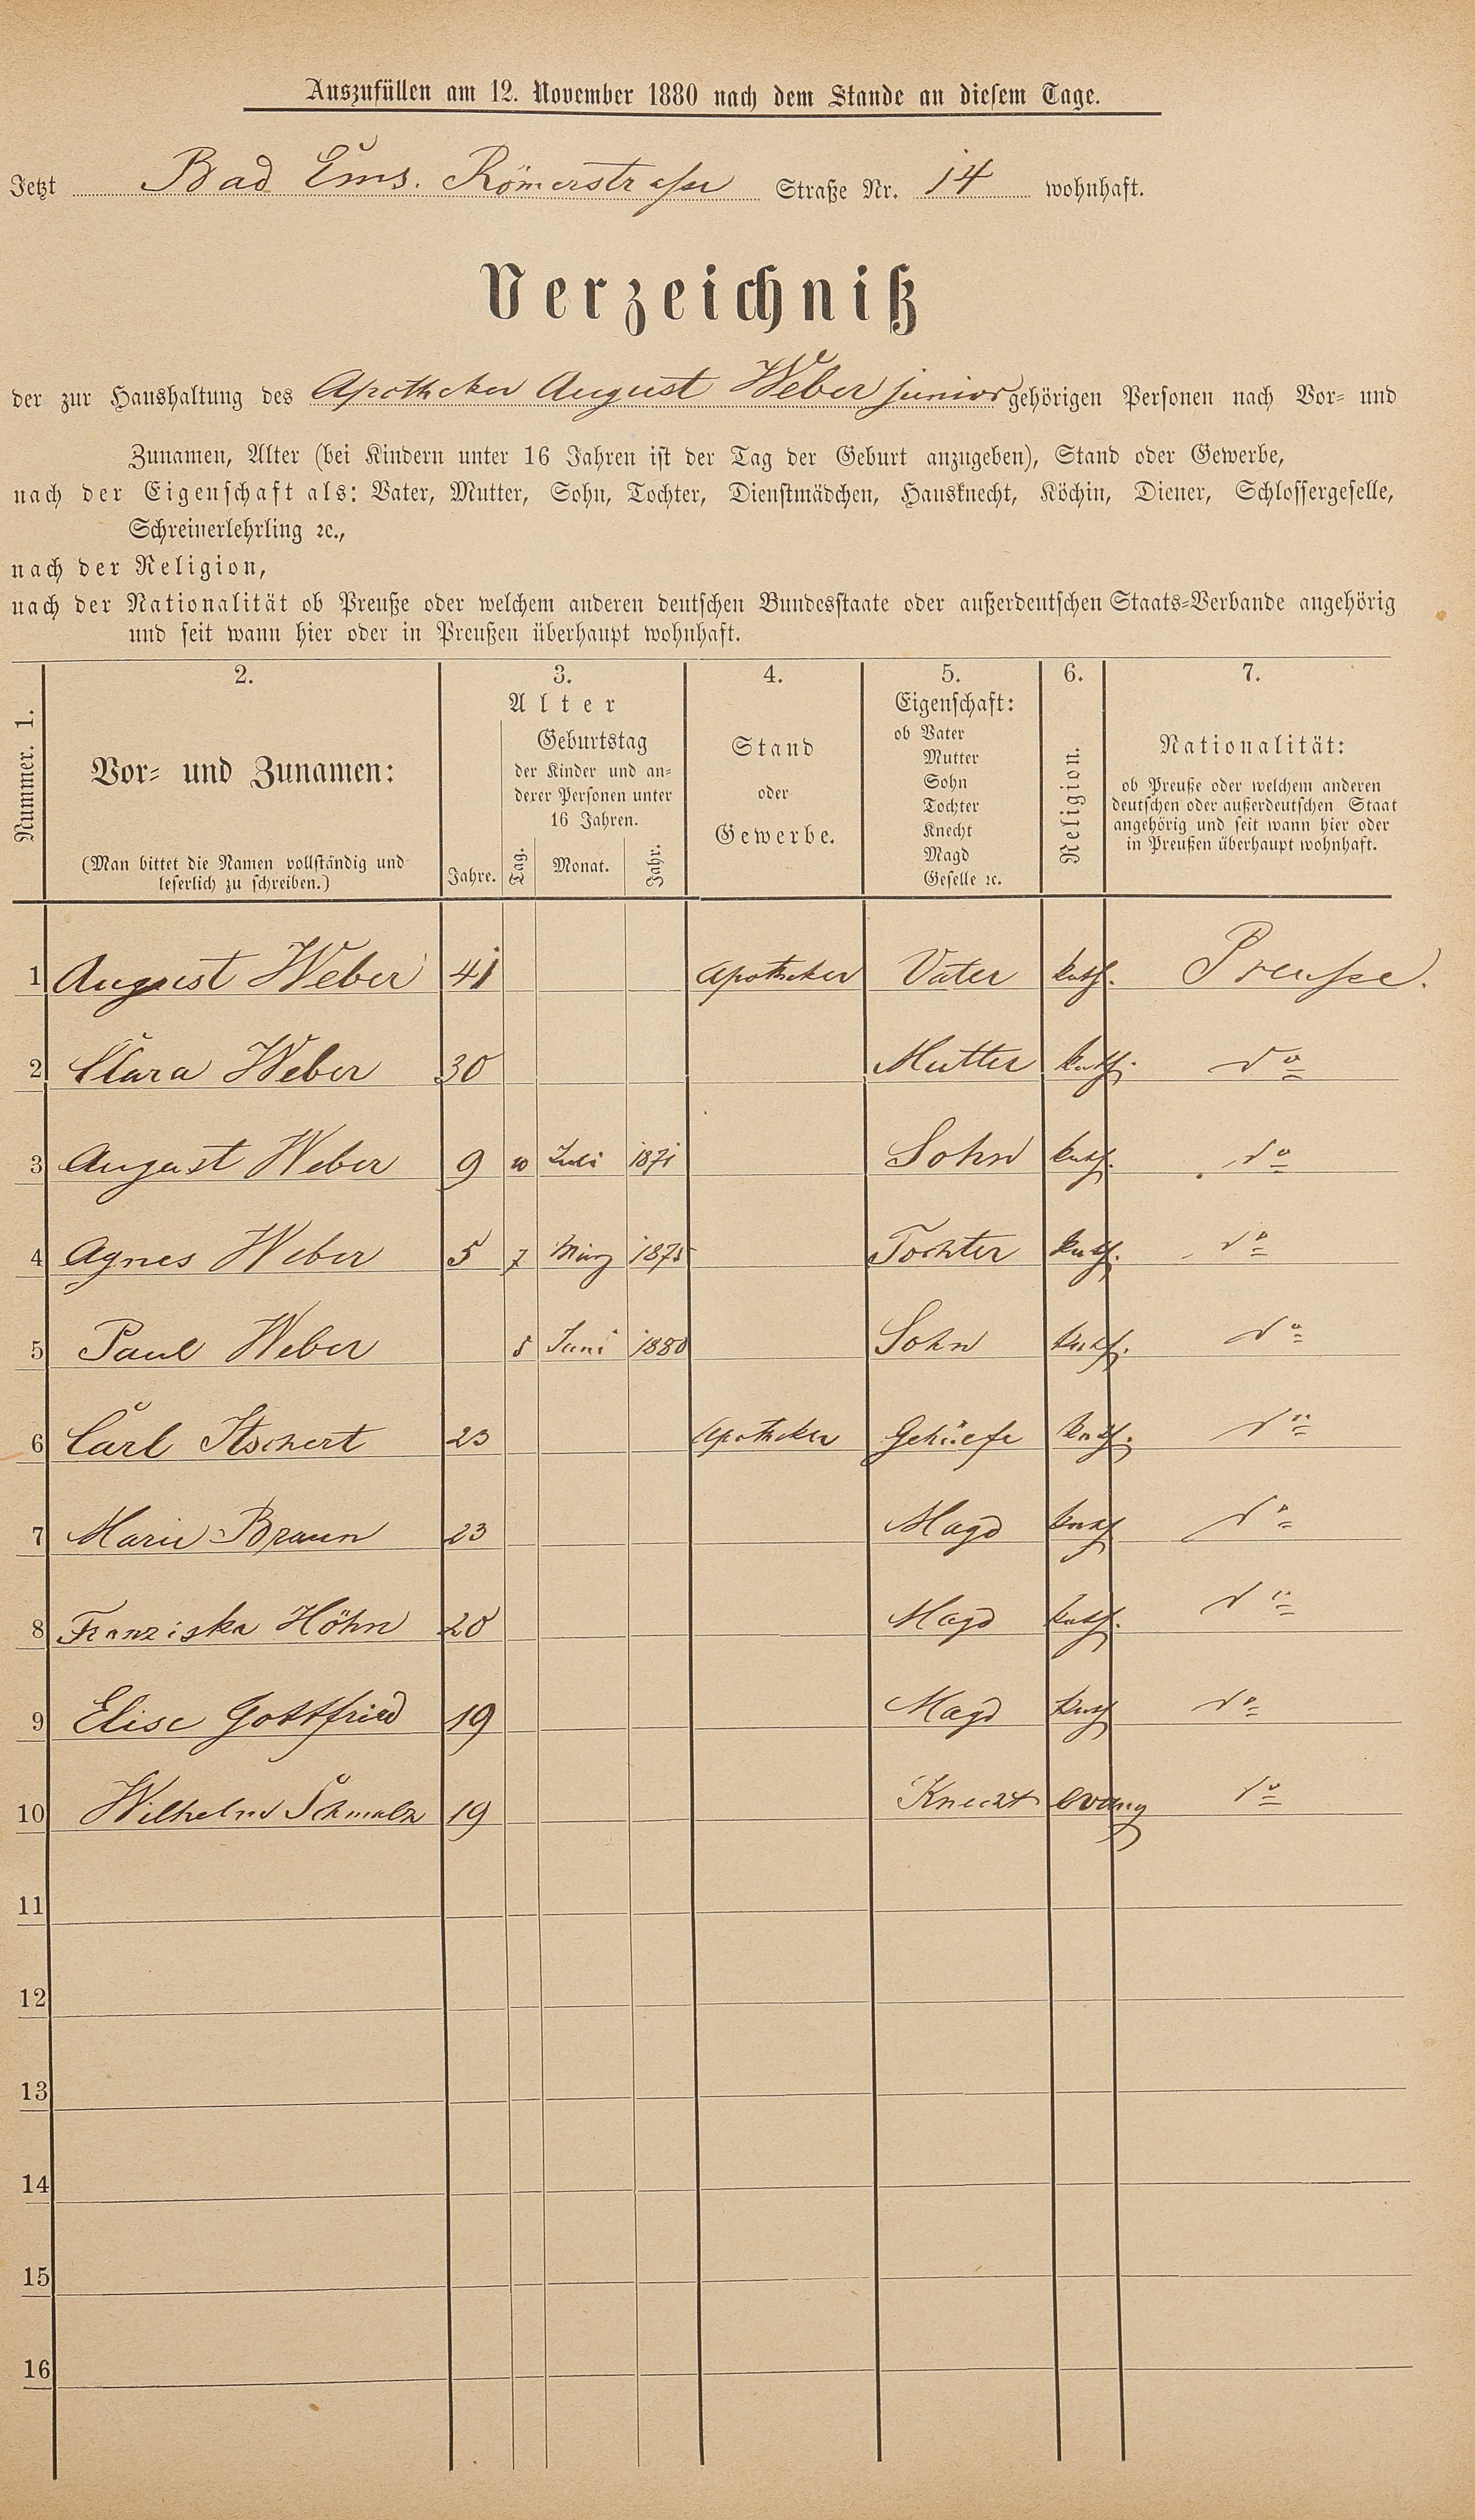 Auszufüllen am 12. November 1880 nach dem Stande an diesem Tage.
Jetzt Bad Ems. Römerstrasse Straße Nr. 14 wohnhaft.
Verzeichniß
der zur Haushaltung des Apotheker August Weber junior gehörigen Personen nach Vor- und
Zunamen, Alter (bei Kindern unter 16 Jahren ist der Tag der Geburt anzugeben), Stand oder Gewerbe,
nach der Eigenschaft als: Vater, Mutter, Sohn, Tochter, Dienstmädchen, Hausknecht, Köchin, Diener, Schlossergeselle,
Schreinerlehrling ꝛc.,
nach der Religion,
nach der Nationalität ob Preuße oder welchem anderen deutschen Bundesstaate oder außerdeutschen Staats-Verbande angehörig
und seit wann hier oder in Preußen überhaupt wohnhaft.
Nummer. 1.
2.
Vor- und Zunamen:
(Man bittet die Namen vollständig und
leserlich zu schreiben.)
3.
Alter
Jahre.
Geburtstag
der Kinder und an-
derer Personen unter
16 Jahren.
Tag. Monat. Jahr.
4.
Stand
oder
Gewerbe.
5.
Eigenschaft:
ob Vater
Mutter
Sohn
Tochter
Knecht
Magd
Geselle ꝛc.
6.
Religion.
7.
Nationalität:
ob Preuße oder welchem anderen
deutschen oder außerdeutschen Staat
angehörig und seit wann hier oder
in Preußen überhaupt wohnhaft.
1 August Weber 41 Apotheker Vater kath. Preusse.
2 Clara Weber 30 Mutter kath. do
3 August Weber 9 10 Juli 1871 Sohn kath. do
4 Agnes Weber 5 7 März 1875 Tochter kath. do
5 Paul Weber 5 Juni 1880 Sohn kath. do
6 Carl Itschert 23 Apotheker Gehülfe kath. do
7 Marie Braun 23 Magd kath do
8 Franziska Höhn 20 Magd kath. do
9 Elise Gottfried 19 Magd kath do
10 Wilhelm Schmalz 19 Knecht evang do
11
12
13
14
15
16